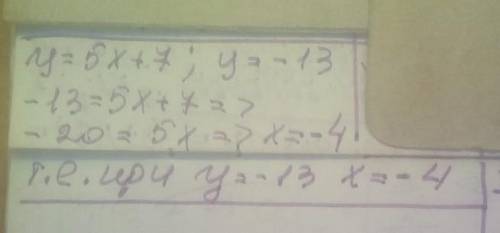 y=5x+7; y=-13
-13=5x+7=>
-20=5x=> x=-4
т.е. при y=-13 x=-4